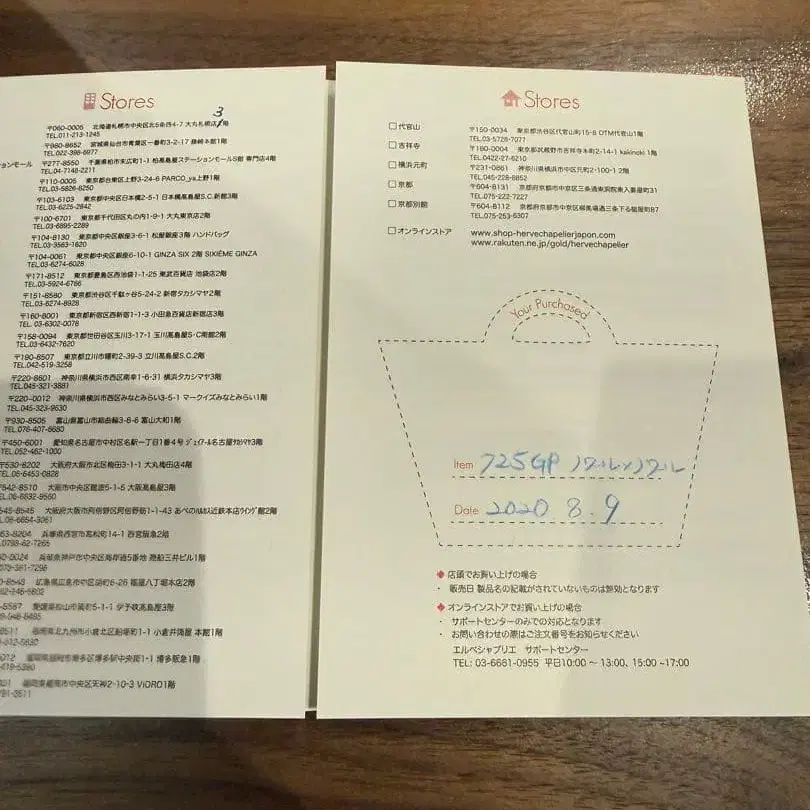 Stores
3
〒060-0005 北海道札幌市中央区北5条西4-7 大丸札幌店1階
TEL.011-213-1245
〒980-8652 宮城県仙台市青葉区一番町3-2-17 藤崎本館1階
TEL.022-398-6977
ションモール 〒277-8550 千葉県柏市末広町1-1 柏髙島屋ステーションモールS館 専門店4階
TEL.04-7148-2211
〒110-0005 東京都台東区上野3-24-6 PARCO_ya上野1階
TEL.03-5826-8250
〒103-6103 東京都中央区日本橋2-5-1 日本橋髙島屋S.C.新館3階
TEL.03-6225-2842
〒100-6701 東京都千代田区丸の内1-9-1 大丸東京店2階
TEL.03-6895-2289
〒104-8130 東京都中央区銀座3-6-1 松屋銀座3階 ハンドバッグ
TEL.03-3563-1620
〒104-0061 東京都中央区銀座6-10-1 GINZA SIX 2階 SIXIÈME GINZA
TEL.03-6274-6028
〒171-8512 東京都豊島区西池袋1-1-25 東武百貨店 池袋店2階
TEL.03-5924-6766
〒151-8580 東京都渋谷区千駄ヶ谷5-24-2 新宿タカシマヤ2階
TEL.03-6274-8928
〒160-8001 東京都新宿区西新宿1-1-3 小田急百貨店新宿店3階
TEL.03-6302-0078
〒158-0094 東京都世田谷区玉川3-17-1 玉川髙島屋S・C南館2階
TEL.03-6432-7620
〒190-8507 東京都立川市曙町2-39-3 立川髙島屋S.C.2階
TEL.042-519-3258
〒220-8601 神奈川県横浜市西区南幸1-6-31 横浜タカシマヤ3階
TEL.045-321-3881
〒220-0012 神奈川県横浜市西区みなとみらい3-5-1 マークイズみなとみらい1階
TEL.045-323-9630
〒930-8505 富山県富山市総曲輪3-8-6 富山大和1階
TEL.076-407-6680
〒450-6001 愛知県名古屋市中村区名駅一丁目1番4号 ジェイアール名古屋タカシマヤ3階
TEL.052-462-1000
〒530-8202 大阪府大阪市北区梅田3-1-1 大丸梅田店4階
TEL.06-6453-0828
542-8510 大阪市中央区難波5-1-5 大阪髙島屋3階
TEL.06-6632-9560
545-8545 大阪府大阪市阿倍野区阿倍野筋1-1-43 あべのハルカス近鉄本店ウイング館2階
TEL.06-6654-3061
63-8204 兵庫県西宮市高松町14-1 西宮阪急2階
0798-62-7265
0-0024 兵庫県神戸市中央区海岸通5番地 商船三井ビル1階
広島県広島市中区胡町6-26 福屋八丁堀本店2階
愛媛県松山市湊町5-1-1 伊予鉄髙島屋3階
8511 福岡県北九州市小倉北区船場町1-1 小倉井筒屋 本館1階
福岡県福岡市博多区博多駅中央街1-1 博多阪急1階
福岡県福岡市中央区天神2-10-3 VIORO1階
Stores
代官山 〒150-0034 東京都渋谷区代官山町15-8 OTM代官山1階
TEL.03-5728-7071
吉祥寺 〒180-0004 東京都武蔵野市吉祥寺本町2-14-1 kakinoki 1階
TEL.0422-27-6210
横浜元町 〒231-0861 神奈川県横浜市中区元町2-100-1 2階
TEL.045-228-6852
京都 〒604-8131 京都府京都市中京区三条通東洞院東入菱屋町31
TEL.075-222-7227
京都別館 〒604-8112 京都府京都市中京区柳馬場通三条下る槌屋町87
TEL.075-253-6307
オンラインストア www.shop-hervechapelierjapon.com
www.rakuten.ne.jp/gold/hervechapelier
Your Purchased
Item 725GP ノワール×ノワール
Date 2020 8.9
◆ 店頭でお買い上げの場合
・ 販売日 製品名の記載がされていないものは無効となります
◆ オンラインストアでお買い上げの場合
・ サポートセンターのみでの対応となります
・ お問い合わせの際はご注文番号をお知らせください
エルベシャプリエ サポートセンター
TEL: 03-6661-0955 平日10:00 ~ 13:00、15:00 ~17:00